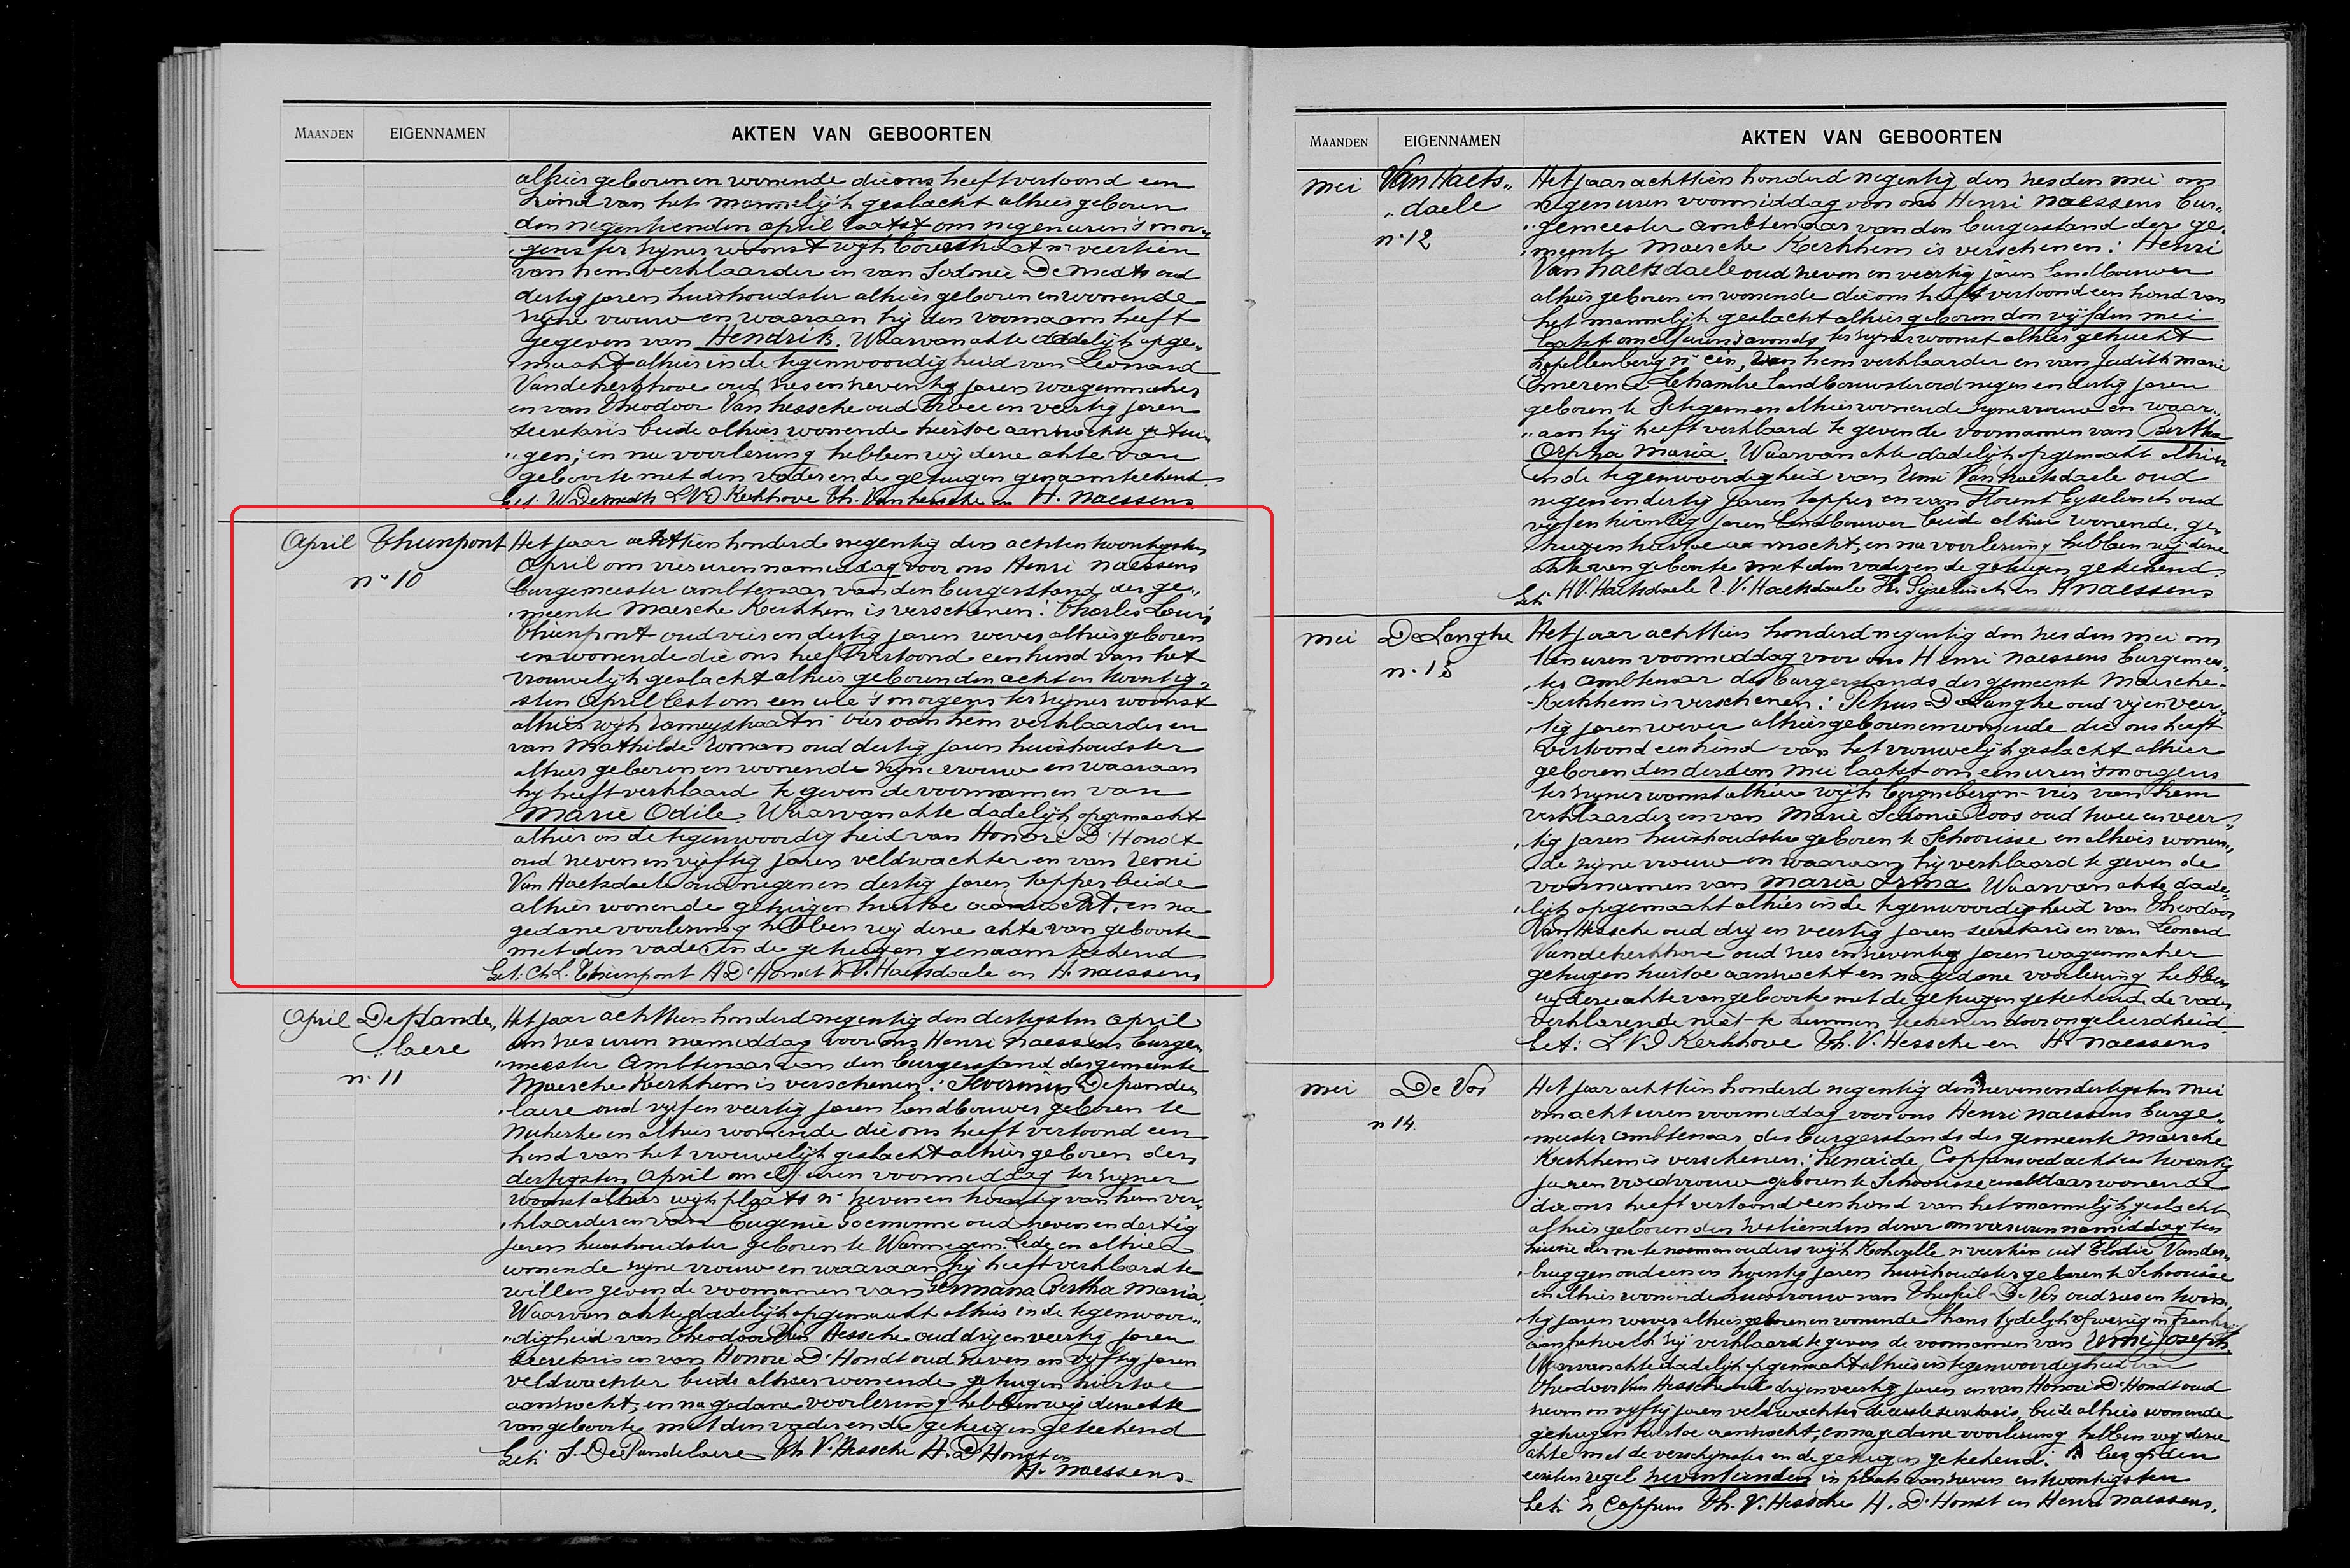 MAANDEN EIGENNAMEN AKTEN VAN GEBOORTEN
alhier geboren en wonende die ons heeft vertoond een
kind van het mannelijk geslacht alhier geboren
den negentienden april laatst om negen uren 's mor„
„gens ter zijner woonst wijk Couthstraat n° veertien
van hem verklaarder en van Sidonie De Medts oud
dertig jaren huishoudster alhier geboren en wonende
zijne vrouw en waaraan hij den voornaam heeft
gegeven van Hendrik. Waarvan akte dadelijk opge„
„maakt alhier in de tegenwoordigheid van Leonard
Vandekerkhove oud zes en zeventig jaren wagenmaker
en van Theodoor Van hessche oud twee en veertig jaren
secretaris beide alhier wonende hiertoe aanzochte getui„
„gen; en na voorlezing hebben wij deze akte van
geboorte met den vader en de getuigen genaamteekend
Get: W. Demedts L VD Kerkhove Th. Vanhessche en H. Naessens
April Thienpont Het jaar achttien honderd negentig den acht en twintigsten
n° 10 April om vier uren namiddag voor ons Henri Naessens
Burgemeester ambtenaar van den burgerstand der ge„
„meente Maercke Kerkhem is verschenen: Charles Louis
Thienpont oud vier en dertig jaren wever alhier geboren
en wonende die ons heeft vertoond een kind van het
vrouwelijk geslacht alhier geboren den acht en twintig„
„sten April lest om een ure 's morgens ter zijner woonst
alhier wijk n° vier van hem verklaarder en
van Mathilde Romans oud dertig jaren huishoudster
alhier geboren en wonende zijne vrouw en waaraan
hij heeft verklaard te geven de voornamen van
Marie Odile. Waarvan akte dadelijk opgemaakt
alhier in de tegenwoordigheid van Honoré D'Hondt
oud zeven en vijftig jaren veldwachter en van Remi
Van Haetsdaele oud negen en dertig jaren tapper beide
alhier wonende getuigen hiertoe aanzocht, en na
gedane voorlezing hebben wij deze akte van geboorte
met den vader en de getuigen genaamteekend
Get: Ch. L. Thienpont H D'Hondt R V. Haetsdaele en H. Naessens
April De Pande„ Het jaar achttien honderd negentig den dertigsten April
„laere om zes uren namiddag voor ons Henri Naessens Burge„
n° 11 „meester Ambtenaar van den burgerstand der gemeente
Maercke Kerkhem is verschenen: Severinus Depande„
„laere oud vijf en veertig jaren landbouwer geboren te
Nukerke en alhier wonende die ons heeft vertoond een
kind van het vrouwelijk geslacht alhier geboren den
dertigsten April om elf uren voormiddag ter zijner
woonst alhier wijk plaats n° zeven en twintig van hem ver„
„klaarder en van Eugenie Goeminne oud zeven en dertig
jaren huishoudster geboren te Wannegem-Lede en alhier
wonende zijne vrouw en waaraan hij heeft verklaard te
willen geven de voornamen van Germana Bertha Maria.
Waarvan akte dadelijk opgemaakt alhier in de tegenwoor„
„digheid van Theodoor Van Hessche oud drij en veertig jaren
secretaris en van Honoré D'Hondt oud zeven en vijftig jaren
veldwachter beide alhier wonende getuigen hiertoe
aanzocht, en na gedane voorlezing hebben wij deze akte
van geboorte met den vader en de getuigen geteekend
Get: S. De Pandelaere Th V. Hessche H. D'Hondt en
H. Naessens
MAANDEN EIGENNAMEN AKTEN VAN GEBOORTEN
Mei Van Haets„ Het jaar achttien honderd negentig den zesden mei om
„daele negen uren voormiddag voor ons Henri Naessens Bur„
n° 12 „gemeester ambtenaar van den burgerstand der ge„
„meente Maercke Kerkhem is verschenen: Henri
Van haetsdaele oud zeven en veertig jaren landbouwer
alhier geboren en wonende die ons heeft vertoond een kind van
het mannelijk geslacht alhier geboren den vijfden mei
laatst om elf uren 's avonds ter zijner woonst alhier gehucht
Kapellenberg n° een, van hem verklaarder en van Judith Marie
Emerence Lehambre landbouwster oud negen en dertig jaren
geboren te Petegem en alhier wonende zijne vrouw en waar„
„aan hij heeft verklaard te geven de voornamen van Bertha
Orpha Maria. Waarvan akte dadelijk opgemaakt alhier
in de tegenwoordigheid van Remi Van haetsdaele oud
negen en dertig jaren tapper en van Florent Gyselinck oud
vijf en twintig jaren landbouwer beide alhier wonende, ge„
„tuigen hiertoe aanzocht, en na voorlezing hebben wij deze
akte van geboorte met den vader en de getuigen geteekend.
Get: H V. Haetsdaele R. V. Haetsdaele Fl. Gyselinck en H Naessens
Mei De Langhe Het jaar achttien honderd negentig den zesden mei om
n° 13 tien uren voormiddag voor ons Henri Naessens Burgemees„
„ter Ambtenaar des burgerstands der gemeente Maercke-
Kerkhem is verschenen: Petrus De Langhe oud vijf en veer„
„tig jaren wever alhier geboren en wonende die ons heeft
vertoond een kind van het vrouwelijk geslacht alhier
geboren den derden Mei laatst om een uren 's morgens
ter zijner woonst alhier wijk n° vier van hem
verklaarder en van Marie Sidonie Roos oud twee en veer„
„tig jaren huishoudster geboren te Schoorisse en alhier wonen„
„de zijne vrouw en waaraan hij verklaard te geven de
voornamen van Maria Irma. Waarvan akte dade„
„lijk opgemaakt alhier in de tegenwoordigheid van Theodoor
Van Hessche oud drij en veertig jaren secretaris en van Leonard
Vandekerkhove oud zes en zeventig jaren wagenmaker
getuigen hiertoe aanzocht en na gedane voorlezing hebben
wij deze akte van geboorte met de getuigen geteekend, de vader
verklarende niet te kunnen teekenen door ongeleerdheid
Get: L VD Kerkhove Th. V. Hessche en H. Naessens
Mei De Vos Het jaar achttien honderd negentig den zeven en dertigsten Mei
n 14. om acht uren voormiddag voor ons Henri Naessens Burge„
„meester ambtenaar des burgerstands der gemeente Maercke
Kerkhem is verschenen: Zenaïde Coppens oud acht en twintig
jaren vroedvrouw geboren te Schoorisse en aldaar wonende
die ons heeft vertoond een kind van het mannelijk geslacht
alhier geboren den zestienden dezer om vier uren namiddag ten
huize der na te noemen ouders wijk n° veertien uit Elodie Vander„
„bruggen oud een en twintig jaren huishoudster geboren te Schoorisse
en alhier wonende huisvrouw van Theofiel De Vos oud zes en twin„
„tig jaren wever alhier geboren en wonende thans tijdelijk afwezig in Frankrijk
aan hetwelk zij verklaard te geven de voornamen van Remi Joseph
Waarvan akte dadelijk opgemaakt alhier in tegenwoordigheid van
Theodoor Van Hessche oud drij en veertig jaren en van Honoré D'Hondt oud
zeven en vijftig jaren veldwachter de eerste secretaris, beide alhier wonende
getuigen hiertoe aanzocht, en na gedane voorlezing hebben wij deze
akte met de verschijnster en de getuigen geteekend. A lees op den
eersten regel zeventienden in plaats van zeven en twintigsten
Get: Z Coppens Th. V. Hessche H. D'Hondt en Henri Naessens.